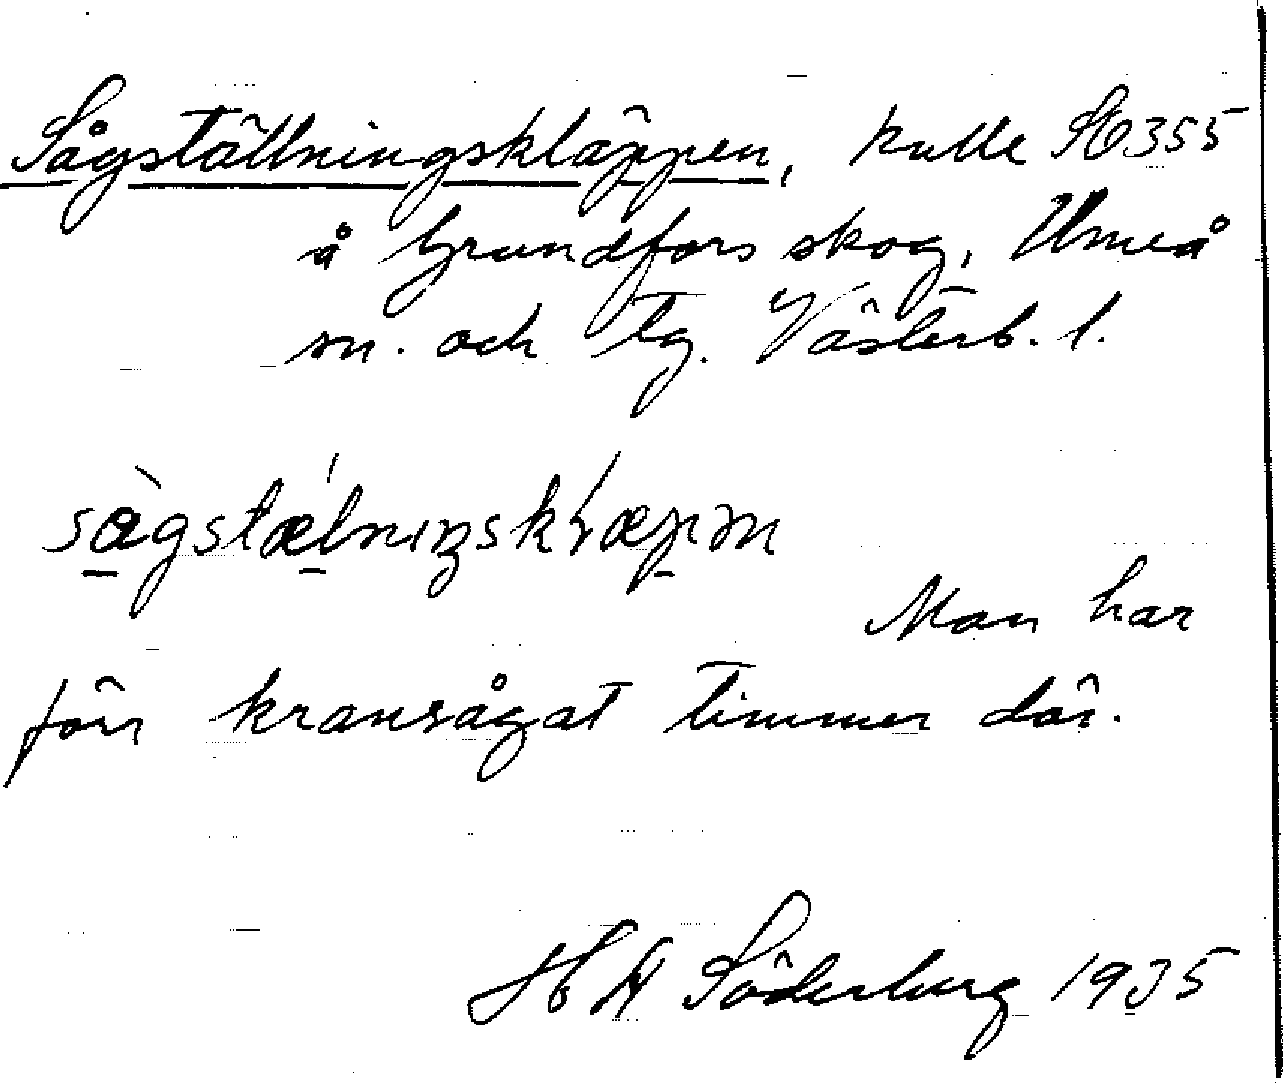 Sågställningskläppen, kulle SO355
å Grundfors skog, Umeå
sn. och tg. Västerb. l.
sàgstælnıŋskɽæpm
Man har
förr kransågat timmer där.
H A Söderberg 1935